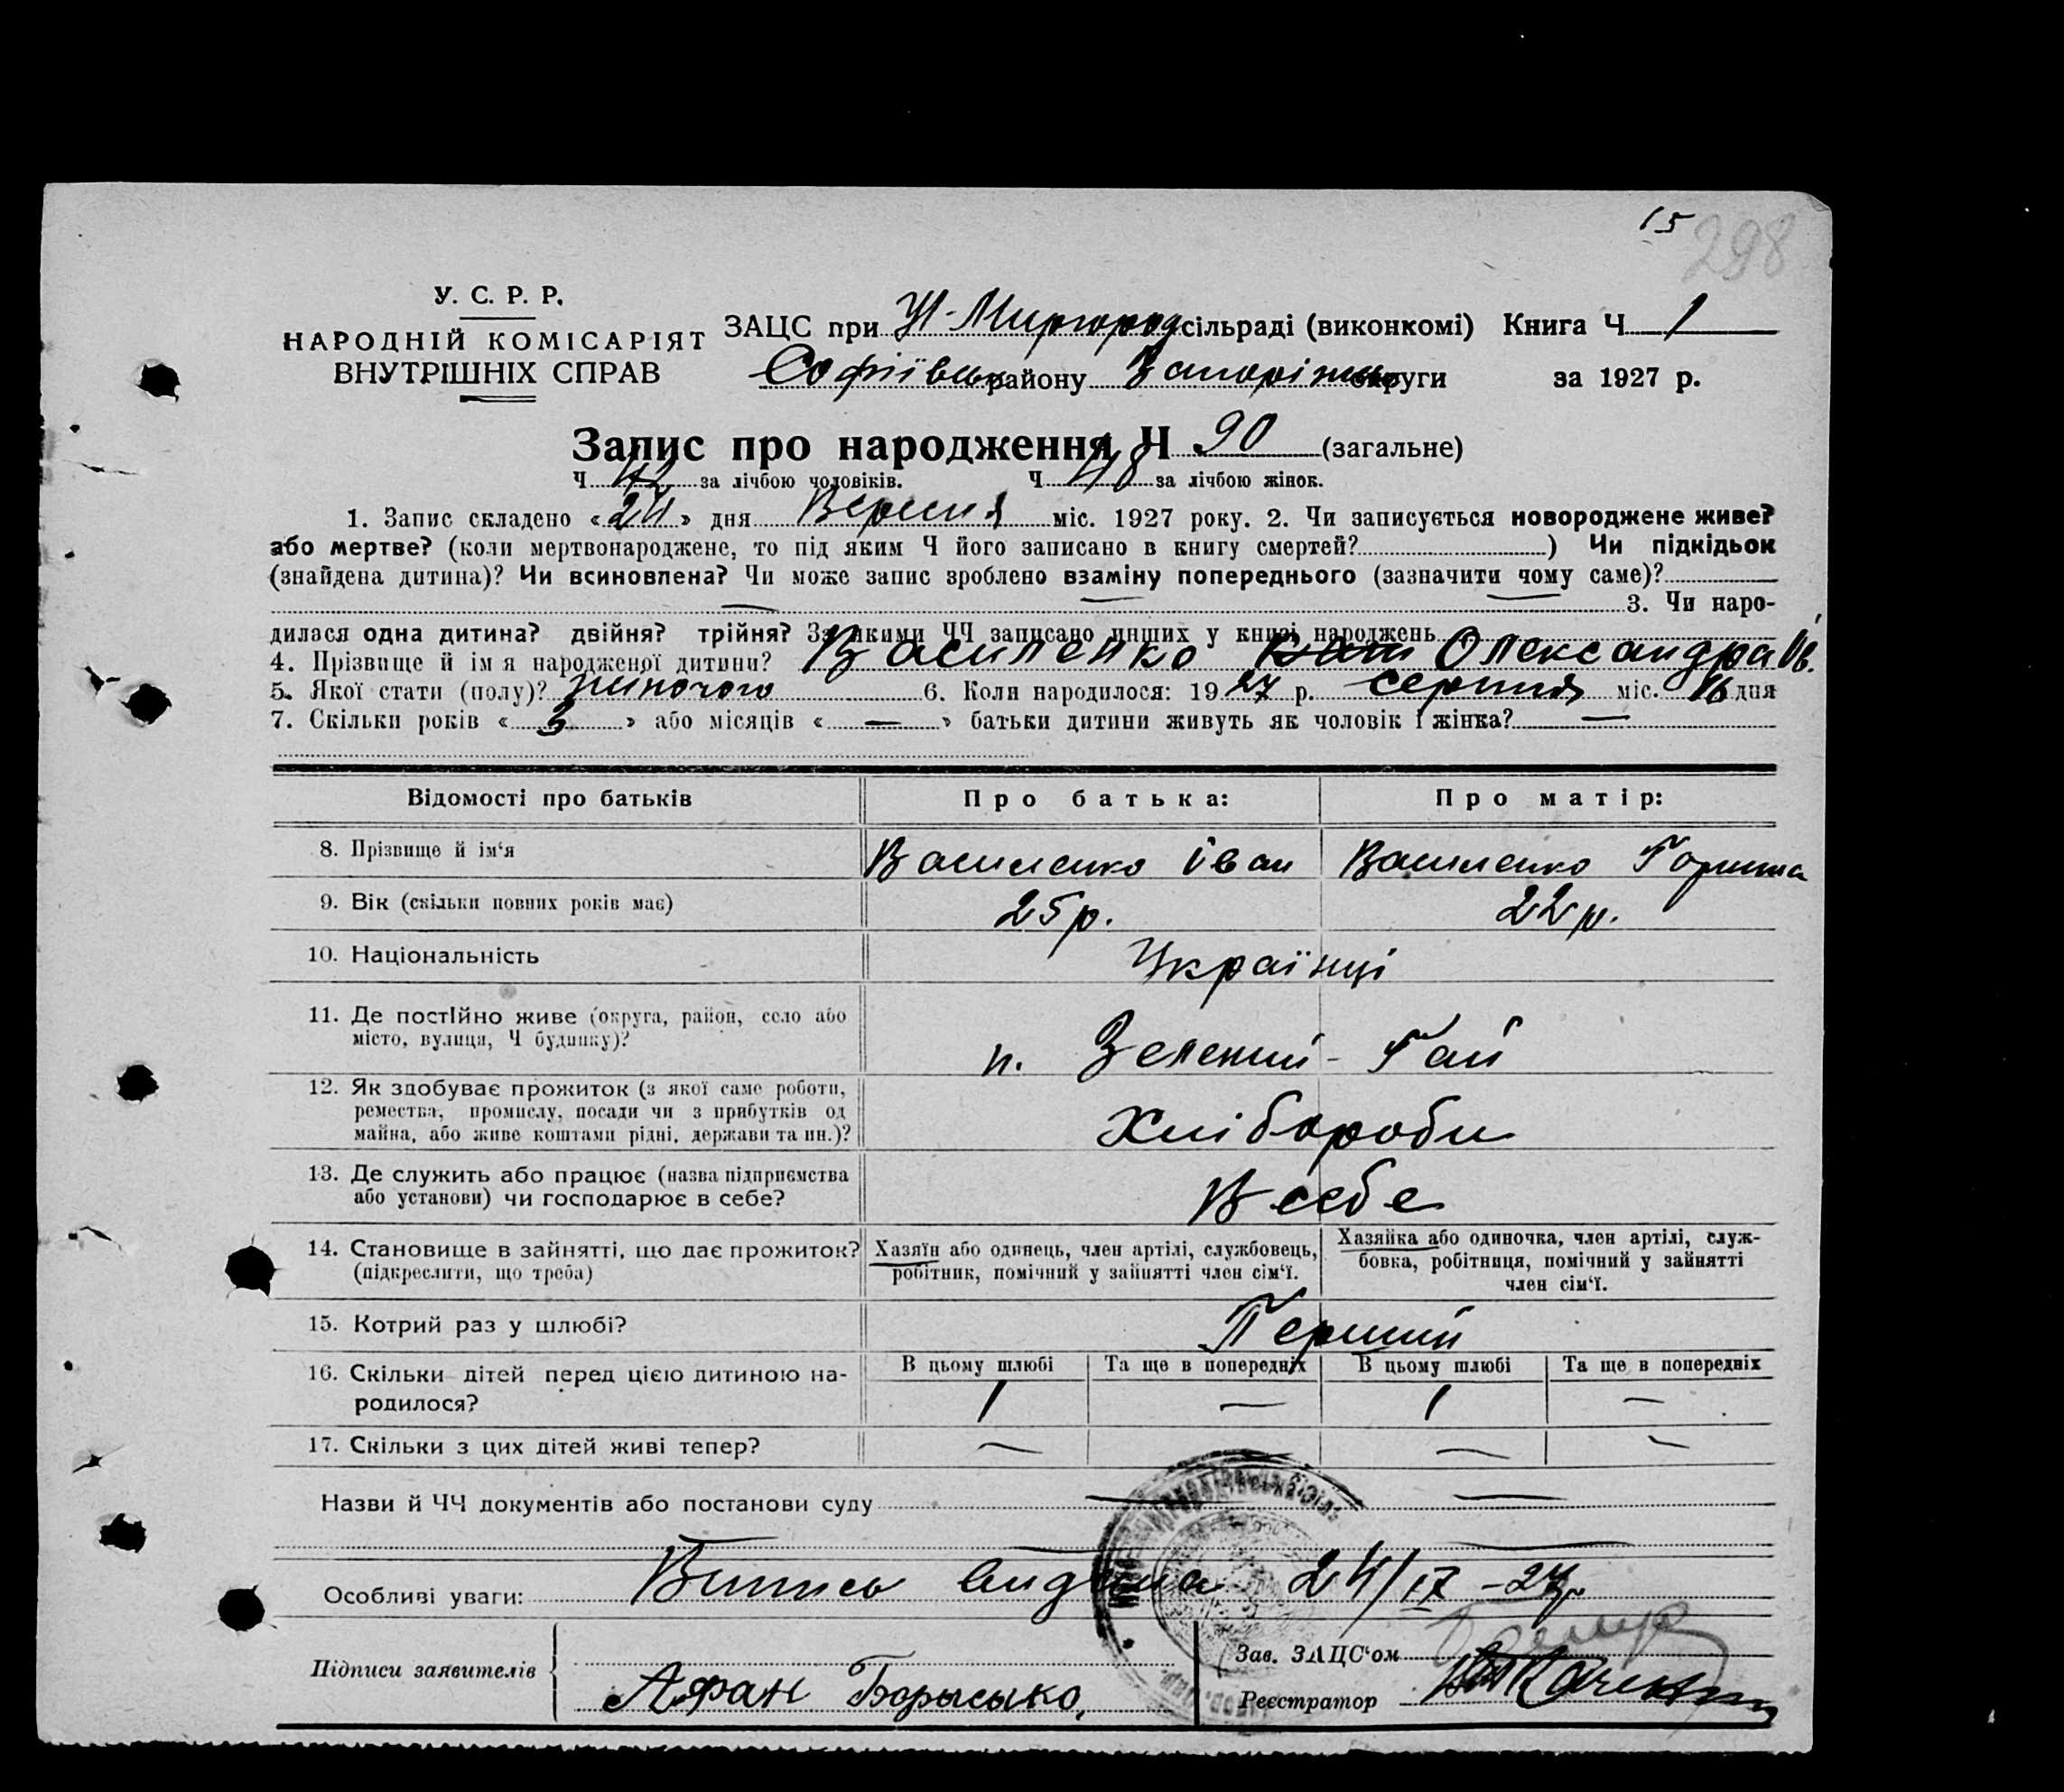 15
298
У. С. Р. Р.
НАРОДНІЙ КОМІСАРІЯТ
ВНУТРІШНІХ СПРАВ
ЗАЦС при Н-Миргород сільраді (виконкомі) Книга Ч 1
Софіївськ району Запоріжж округи за 1927 р.
Запис про народження Ч 90 (загальне)
Ч 42 за лічбою чоловіків. Ч 48 за лічбою жінок.
1. Запис складено «24» дня Вересня міс. 1927 року. 2. Чи записується новороджене живе?
або мертве? (коли мертвонароджене, то під яким Ч його записано в книгу смертей?) Чи підкідьок
(знайдена дитина)? Чи всиновлена? Чи може запис зроблено взаміну попереднього (зазначити чому саме)?
— — — 3. Чи наро-
дилася одна дитина? двійня? трійня? За якими ЧЧ записано инших у книзі народжень
4. Прізвище й ім я народженої дитини? Василенко Олександра Ів.
5. Якої стати (полу)? жиночого 6. Коли народилося: 1927 р. серпня міс. 16 дня
7. Скільки років «3» або місяців «—» батьки дитини живуть як чоловік і жінка? —
Відомості про батьків Про батька: Про матір:
8. Прізвище й ім‘я Василенко Іван Василенко Горпина
9. Вік (скільки повних років має) 25 р. 22 р.
10. Національність Українці
11. Де постійно живе (округа, район, село або
місто, вулиця, Ч будинку)? п. Зелений-Гай
12. Як здобуває прожиток (з якої саме роботи,
ремества, промислу, посади чи з прибутків од
майна, або живе коштами рідні, держави та ин.)? Хлібороби
13. Де служить або працює (назва підприємства
або установи) чи господарює в себе? В себе
14. Становище в зайнятті, що дає прожиток?
(підкреслити, що треба)
Хазяїн або одинець, член артілі, службовець,
робітник, помічний у зайнятті член сім‘ї.
Хазяйка або одиночка, член артілі, служ-
бовка, робітниця, помічний у зайнятті
член сім‘ї.
15. Котрий раз у шлюбі? Перший
16. Скільки дітей перед цією дитиною на-
родилося?
В цьому шлюбі Та ще в попередніх В цьому шлюбі Та ще в попередніх
1 — 1 —
17. Скільки з цих дітей живі тепер? — — —
Назви й ЧЧ документів або постанови суду — —
Особливі уваги: Випись видана 24/IX-27р
Підписи заявителів Афан Борысько,
Зав. ЗАЦС‘ом
Реєстратор